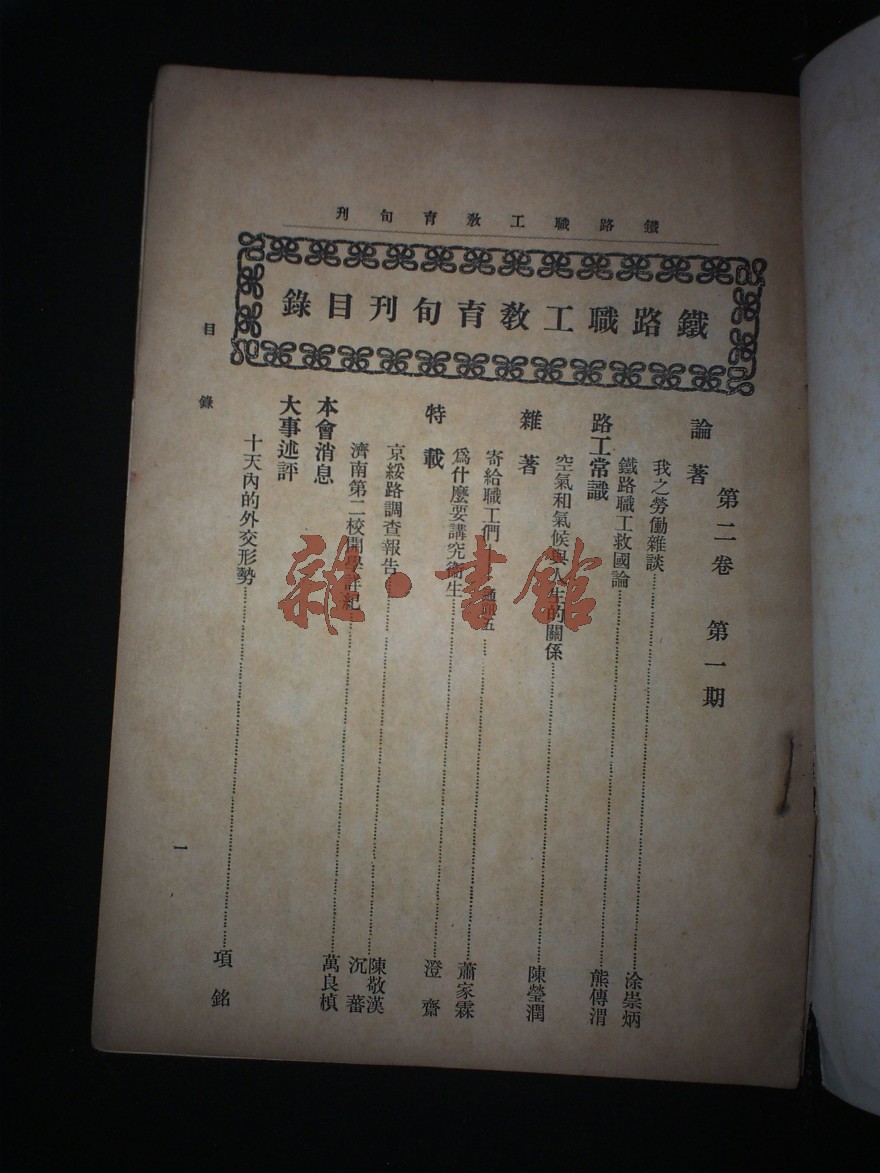 鐵路職工敎育旬刊
鐵路職工敎育旬刊目錄
第二卷 第一期
論著
我之勞働雜談……涂崇炳
鐵路職工救國論……熊傳渭
路工常識
空氣和氣候與人生的關係……陳瑩潤
雜著
寄給職工們……蕭家霖
爲什麽要講究衞生……澄齋
特載
京綏路調查報告……陳敬漢 沉蕃
濟南第二校開學詳紀……萬良楨
本會消息
大事述評
十天內的外交形勢……項銘
目錄
一
雜·書館